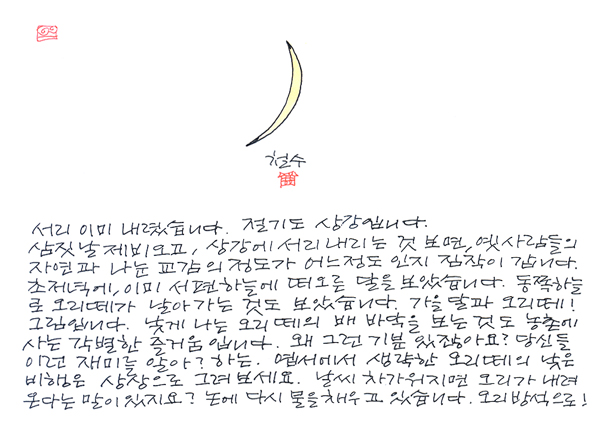 철수
서리 이미 내렸습니다. 절기도 상강입니다.
삼짓날 제비오고, 상강에 서리 내리는 것 보면, 옛사람들의
자연과 나눈 교감의 정도가 어느정도 인지 짐작이 갑니다.
초저녁에, 이미 서편하늘에 떠오른 달을 보았습니다. 동쪽하늘
로 오리떼가 날아가는 것도 보았습니다. 가을 달과 오리떼!
그림입니다. 낮게 나는 오리떼의 배 바닥을 보는 것도 농촌에
사는 각별한 즐거움입니다. 왜 그런 기분 있잖아요? 당신들
이런 재미를 알아? 하는. 엽서에서 생략한 오리떼의 낮은
비행은 상상으로 그려보세요. 날씨 차가워지면 오리가 내려
온다는 말이 있지요? 논에 다시 물을 채우고 있습니다. 오리방석으로!